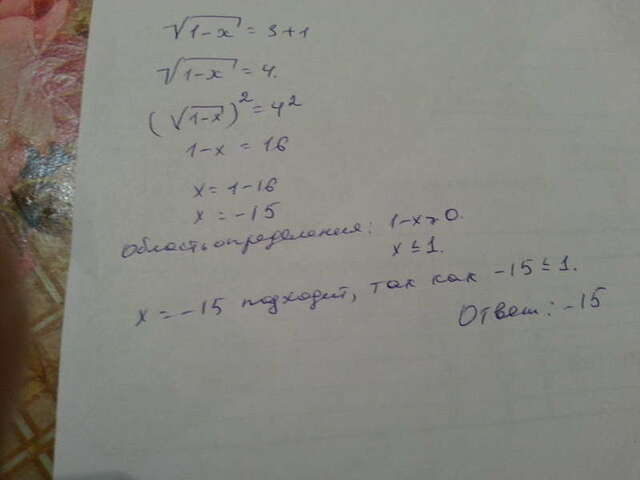 √1-x = 3+1
√1-x = 4.
(√1-x)² = 4²
1-x = 16
x = 1-16
x = -15
Область определения: 1-x≥0.
x ≤ 1.
x = -15 подходит, так как -15 ≤ 1.
Ответ: -15